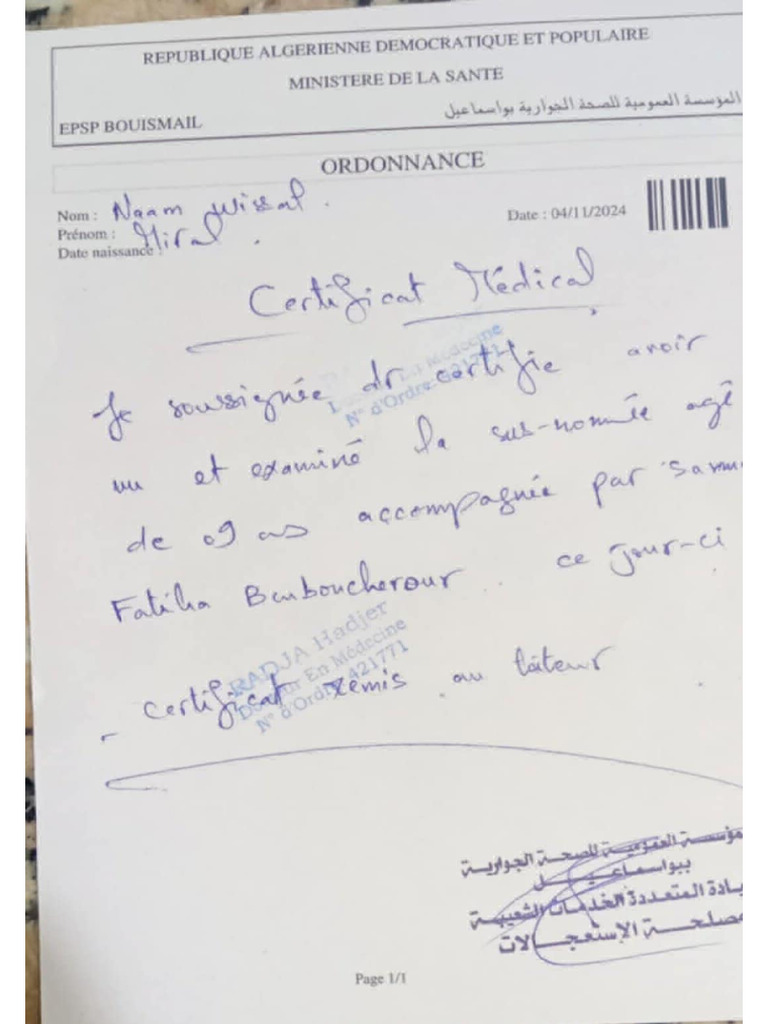 REPUBLIQUE ALGERIENNE DEMOCRATIQUE ET POPULAIRE
MINISTERE DE LA SANTE
المؤسسة العمومية للصحة الجوارية بواسماعيل
EPSP BOUISMAIL
ORDONNANCE
Nom : Naam Wissal .
Prénom : Miral .
Date naissance :
Date : 04/11/2024
Certificat Médical
En Médecine
N° d'Ordre 421771
Je soussignée dr certifie avoir
vu et examiné la sus-nommée agé
de 09 ans accompagnée par sa
Fatiha Benboucherour ce jour-ci
RADJA Hadjer
Docteur En Médecine
N° d'Ordre 421771
- certificat remis au
مؤسسة العمومية للصحة الجوارية
ببواسماعيل
يادة المتعددة الخدمات الشعيبة
مصلحة الإستعجالات
Page 1/1